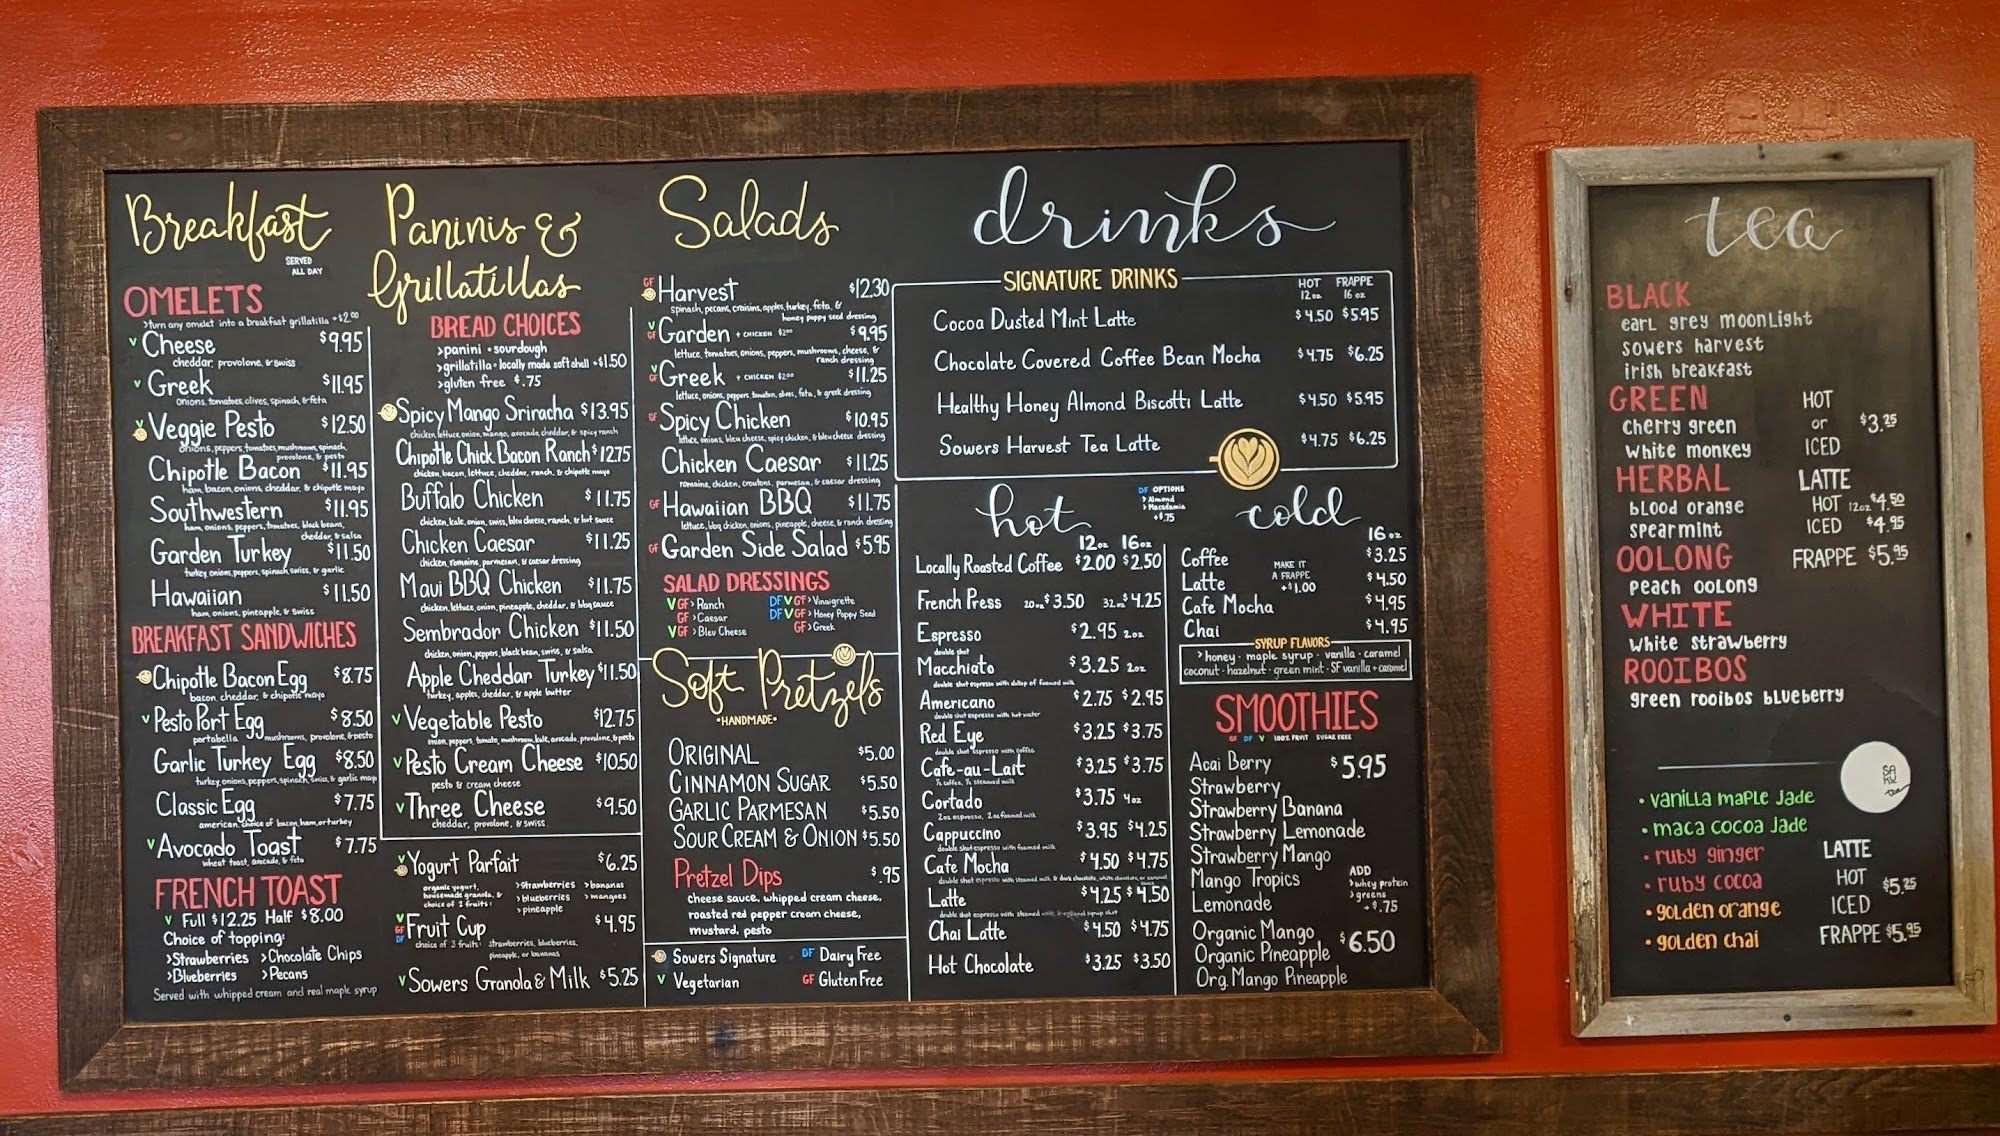 Breakfast
SERVED
ALL DAY
OMELETS
>turn any omelet into a breakfast grillatilla +$2.00
V Cheese $9.95
cheddar, provolone, & swiss
V Greek $11.95
onions, tomatoes, olives, spinach, & feta
V Veggie Pesto $12.50
onions, peppers, tomatoes, mushrooms, spinach,
provolone, & pesto
Chipotle Bacon $11.95
ham, bacon, onions, cheddar, & chipotle mayo
Southwestern $11.95
ham, onions, peppers, tomatoes, black beans,
cheddar, & salsa
Garden Turkey $11.50
turkey, onions, peppers, spinach, swiss, & garlic
Hawaiian $11.50
ham, onions, pineapple, & swiss
BREAKFAST SANDWICHES
Chipotle Bacon Egg $8.75
bacon, cheddar, & chipotle mayo
V Pesto Port Egg $8.50
portabella mushrooms, provolone, & pesto
Garlic Turkey Egg $8.50
turkey, onions, peppers, spinach, swiss, & garlic mayo
Classic Egg $7.75
american, choice of bacon, ham, or turkey
V Avocado Toast $7.75
wheat toast, avocado, & feta
FRENCH TOAST
V Full $12.25 Half $8.00
Choice of topping:
>Strawberries >Chocolate Chips
>Blueberries >Pecans
Served with whipped cream and real maple syrup
Paninis &
Grillatillas
BREAD CHOICES
>panini • sourdough
>grillatilla • locally made soft shell +$1.50
>gluten free $.75
Spicy Mango Sriracha $13.95
chicken, lettuce, onion, mango, avocado, cheddar, & spicy ranch
Chipotle Chick Bacon Ranch $12.75
chicken, bacon, lettuce, cheddar, ranch, & chipotle mayo
Buffalo Chicken $11.75
chicken, kale, onion, swiss, bleu cheese, ranch, & hot sauce
Chicken Caesar $11.25
chicken, romaine, parmesan, & caesar dressing
Maui BBQ Chicken $11.75
chicken, lettuce, onion, pineapple, cheddar, & bbq sauce
Sembrador Chicken $11.50
chicken, onion, peppers, black bean, swiss, & salsa
Apple Cheddar Turkey $11.50
turkey, apples, cheddar, & apple butter
V Vegetable Pesto $12.75
onion, peppers, tomato, mushroom, kale, avocado, provolone, & pesto
V Pesto Cream Cheese $10.50
pesto & cream cheese
V Three Cheese $9.50
cheddar, provolone, & swiss
V Yogurt Parfait $6.25
organic yogurt, >strawberries >bananas
housemade granola, & >blueberries >mangoes
choice of 2 fruits: >pineapple
V GF DF Fruit Cup $4.95
choice of 3 fruits: strawberries, blueberries,
pineapple, or bananas
V Sowers Granola & Milk $5.25
Salads
GF Harvest $12.30
spinach, pecans, craisins, apples, turkey, feta, &
honey poppy seed dressing
V GF Garden + CHICKEN $2.00 $9.95
lettuce, tomatoes, onions, peppers, mushrooms, cheese, &
ranch dressing
V GF Greek + CHICKEN $2.00 $11.25
lettuce, onions, peppers, tomatoes, olives, feta, & greek dressing
GF Spicy Chicken $10.95
lettuce, onions, bleu cheese, spicy chicken, & bleu cheese dressing
Chicken Caesar $11.25
romaine, chicken, croutons, parmesan, & caesar dressing
GF Hawaiian BBQ $11.75
lettuce, bbq chicken, onions, pineapple, cheese, & ranch dressing
GF Garden Side Salad $5.95
SALAD DRESSINGS
V GF > Ranch DF V GF > Vinaigrette
GF > Caesar DF V GF > Honey Poppy Seed
V GF > Bleu Cheese GF > Greek
Soft Pretzels
•HANDMADE•
ORIGINAL $5.00
CINNAMON SUGAR $5.50
GARLIC PARMESAN $5.50
SOUR CREAM & ONION $5.50
Pretzel Dips $.95
cheese sauce, whipped cream cheese,
roasted red pepper cream cheese,
mustard, pesto
Sowers Signature DF Dairy Free
V Vegetarian GF Gluten Free
drinks
SIGNATURE DRINKS HOT FRAPPE
12 oz 16 oz
Cocoa Dusted Mint Latte $4.50 $5.95
Chocolate Covered Coffee Bean Mocha $4.75 $6.25
Healthy Honey Almond Biscotti Latte $4.50 $5.95
Sowers Harvest Tea Latte $4.75 $6.25
hot
DF OPTIONS
>Almond
>Macadamia
+$.75
12oz 16oz
Locally Roasted Coffee $2.00 $2.50
French Press 20oz $3.50 32oz $4.25
Espresso $2.95 2oz
double shot
Macchiato $3.25 2oz
double shot espresso with dollop of foamed milk
Americano $2.75 $2.95
double shot espresso with hot water
Red Eye $3.25 $3.75
double shot espresso with coffee
Cafe-au-Lait $3.25 $3.75
½ coffee, ½ steamed milk
Cortado $3.75 4oz
2oz espresso, 2oz foamed milk
Cappuccino $3.95 $4.25
double shot espresso with foamed milk
Cafe Mocha $4.50 $4.75
double shot espresso with steamed milk & dark chocolate, white chocolate, or caramel
Latte $4.25 $4.50
double shot espresso with steamed milk & optional syrup shot
Chai Latte $4.50 $4.75
Hot Chocolate $3.25 $3.50
cold
16 oz
Coffee $3.25
Latte $4.50
Cafe Mocha $4.95
Chai $4.95
MAKE IT
A FRAPPE
+$1.00
SYRUP FLAVORS
>honey • maple syrup • vanilla • caramel
coconut • hazelnut • green mint • SF vanilla + caramel
SMOOTHIES
GF DF V 100% FRUIT SUGAR FREE
Acai Berry $5.95
Strawberry
Strawberry Banana
Strawberry Lemonade
Strawberry Mango
Mango Tropics
Lemonade
ADD
>whey protein
>greens
+$.75
Organic Mango $6.50
Organic Pineapple
Org. Mango Pineapple
tea
BLACK
earl grey moonlight
sowers harvest
irish breakfast
GREEN
cherry green
white monkey
HERBAL
blood orange
spearmint
OOLONG
peach oolong
WHITE
white strawberry
ROOIBOS
green rooibos blueberry
HOT
or $3.25
ICED
LATTE
HOT 12oz $4.50
ICED $4.95
FRAPPE $5.95
SA
KU
tea
• vanilla maple jade
• maca cocoa jade
• ruby ginger
• ruby cocoa
• golden orange
• golden chai
LATTE
HOT $5.25
ICED
FRAPPE $5.95